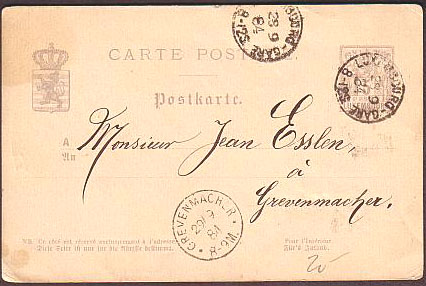 CARTE POSTALE.
LUXEMBOURG-GARE
28 9
84
8-12S
LUXEMBOURG-GARE
28 9
84
8-12S
Postkarte.
A
An
Monsieur Jean Esslen,
à
Grevenmacher.
GREVENMACHER
29 9
84
8-9M.
NB Ce côté est réservé exclusivement à l'adresse
Diese Seite ist nur für die Adresse bestimmt.
Pour l'Intérieur.
Für's Inland.